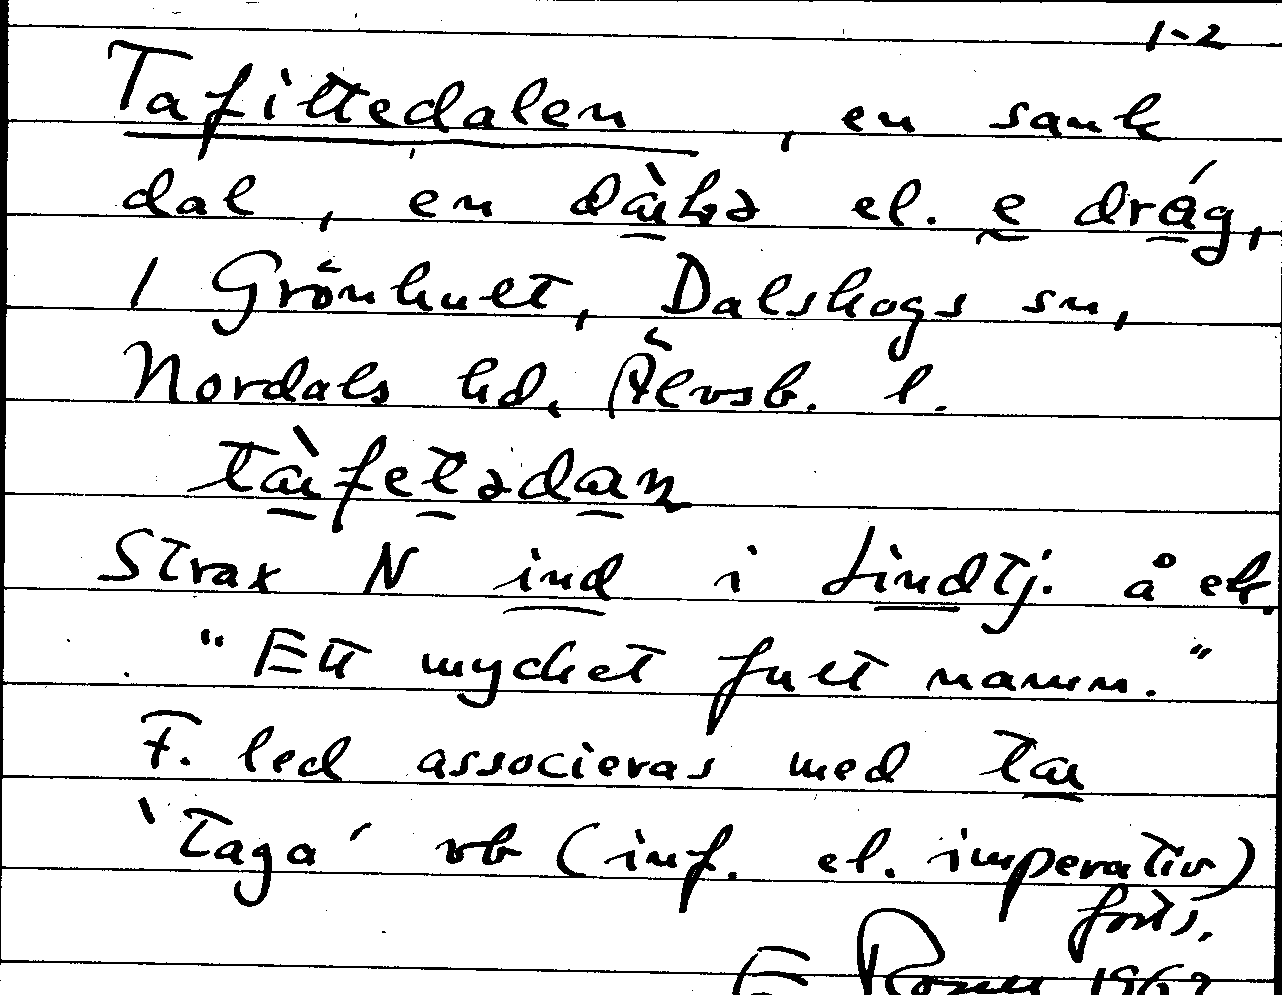 1-2
Tafittedalen, en sank
dal, en dàᷓkə el. e drág,
I Grönhult, Dalskogs sn,
Nordals hd, Älvsb. l.
tàfetədan
Strax N ind i Lindtj. å ek.
"Ett mycket fult namn."
F. led associeras med ta
'Taga' vb (inf. el. imperativ)
forts.
E Rosell 1962